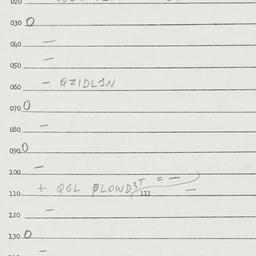 030 0
040 —
050 —
060 — QZIDL1N
070 0
080 —
090 0
100 —
110 + QGL
120 —
130 0